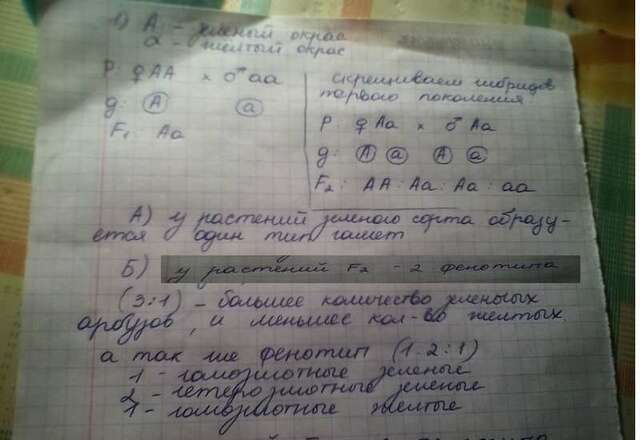 1) А - зеленый окрас
а - желтый окрас
P: ♀ AA × ♂ aa
g: A a
F1: Aa
скрещиваем гибридов
первого поколения
P: ♀ Aa × ♂ Aa
g: A a A a
F2: AA : Aa : Aa : aa
А) у растений зеленого сорта образу-
ется один тип гамет
Б) у растений F2 - 2 фенотипа
(3:1) - большее количество зеленых
арбузов, и меньшее кол-во желтых.
а так же фенотип (1:2:1)
1 - гомозиготные зеленые
2 - гетерозиготные зеленые
1 - гомозиготные желтые